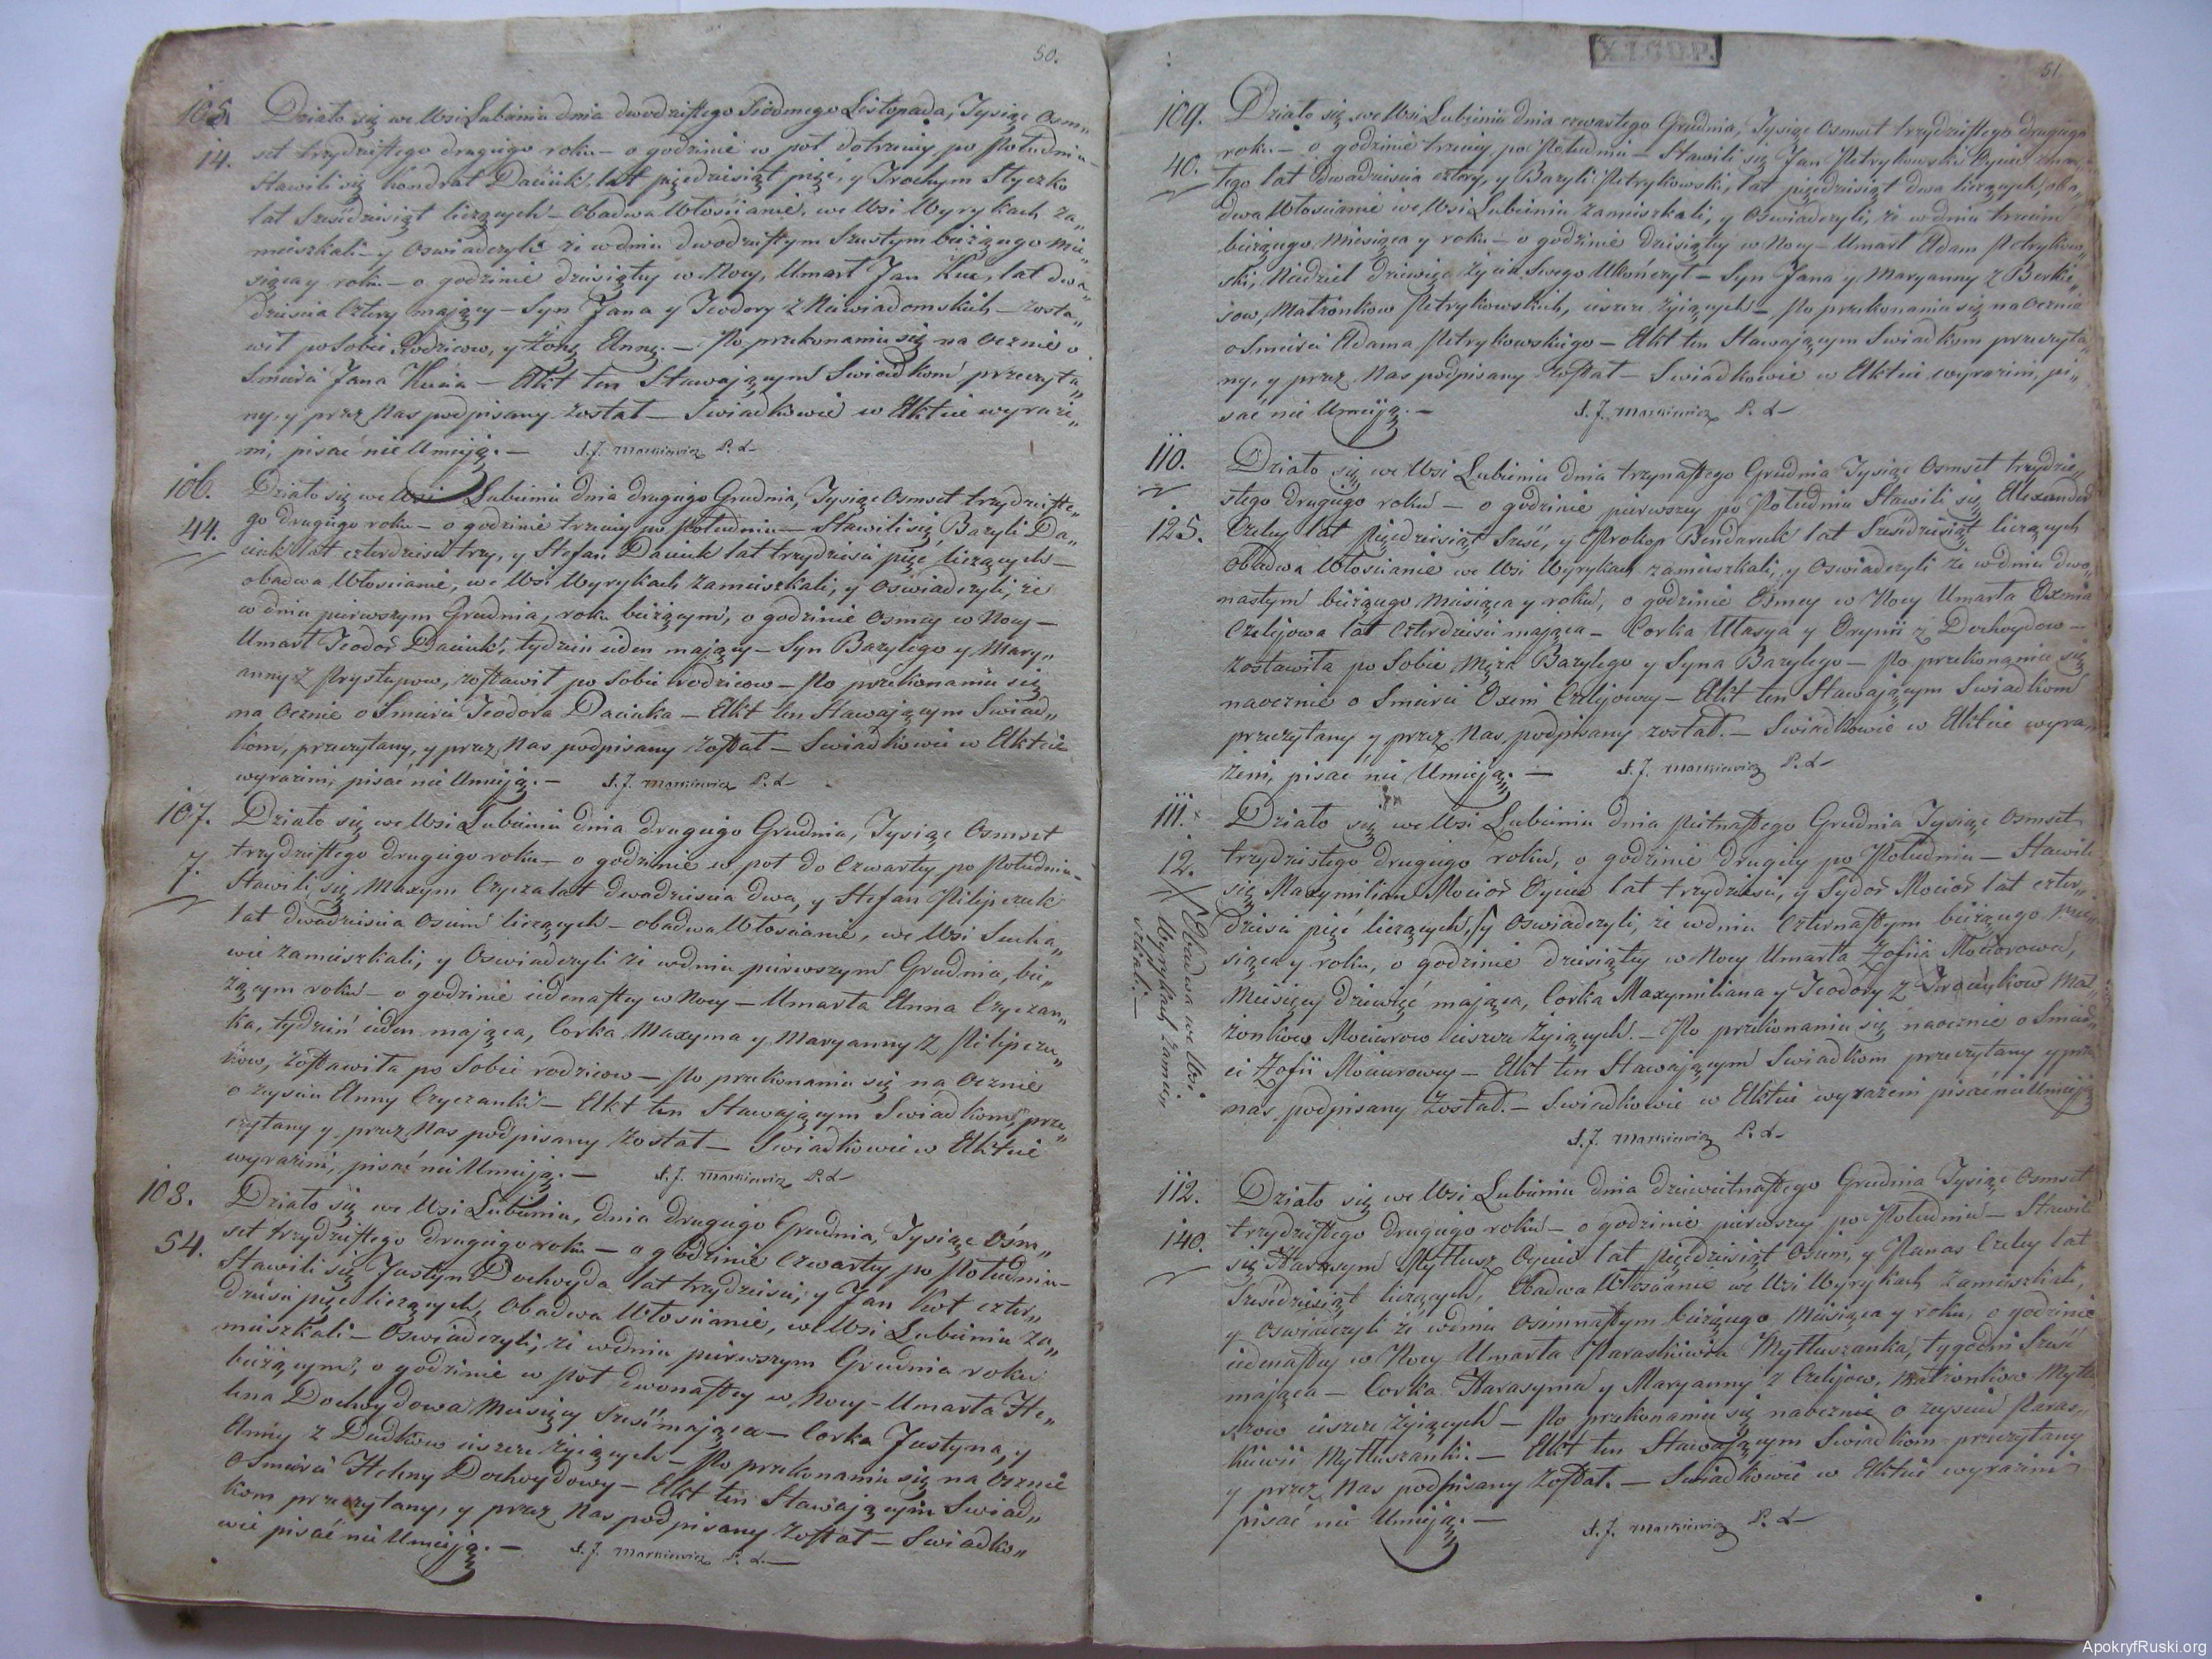 50.
105.
14.
Działo się we Wsi Lubieniu dnia dwódziestego Siódmego Listopada, Tysiąc Osm„
set trzydziestego drugiego roku — o godzinie w pół dotrzeciey po Południu —
Stawili się Kondrat Daciuk, lat pięćdziesiąt pięć, y Trochym Styczko
lat Sześćdziesiąt liczących — Obadwa Włościanie, we Wsi Wyrykach za„
mieszkali — y Oswiadczyli że w dniu dwódziestym Szustym bieżącego Mie„
siąca y roku — o godzinie dziesiątey w Nocy, Umarł Jan Kuc, lat dwa„
dzieścia Cztery maiący — Syn Jana y Teodory z Niewiadomskich — zosta„
wił po Sobie Rodzicow, y Żonę Annę. — Po przekonaniu się na Ocznie o
Smierci Jana Kucia — Akt ten Stawaiącym Swiadkom przeczyta„
ny, y przez Nas podpisany został — Swiadkowie w Akcie wyraże„
ni, pisać nie Umieją. — S. J. Markiewicz P. L.
106.
44.
Działo się we Wsi Lubieniu dnia drugiego Grudnia, Tysiąc Osmset trzydzieste„
go drugiego roku — o godzinie trzeciey po Południu — Stawili się Bazyli Da„
ciuk lat czterdzieści trzy, y Stefan Daciuk lat trzydzieści pięć liczących —
obadwa Włościanie, we Wsi Wyrykach zamieszkali, y Oswiadczyli, że
w dniu pierwszym Grudnia, roku bieżącym, o godzinie Osmey w Nocy —
Umarł Teodor Daciuk, tydzień ieden maiący — Syn Bazylego y Mary„
anny z Prystupow, zostawił po Sobie rodzicow — Po przekonaniu się
na Ocznie o Smierci Teodora Daciuka — Akt ten Stawaiącym Swiad„
kom, przeczytany, y przez Nas podpisany został — Swiadkowie w Akcie
wyrażeni, pisać nie Umieją. — S. J. Markiewicz P. L.
107.
7.
Działo się we Wsi Lubieniu dnia drugiego Grudnia, Tysiąc Osmset
trzydziestego drugiego roku — o godzinie w pół do Czwartey po Południu —
Stawili się Maxym Czycza lat dwadzieścia dwa, y Stefan Pilipczuk
lat dwadzieścia Osim liczących — obadwa Włościanie, we Wsi Sucha„
wie zamieszkali, y Oswiadczyli że w dniu pierwszym Grudnia, bie„
żącym roku — o godzinie iedenastey w Nocy — Umarła Anna Czyczan„
ka, tydzień ieden maiąca, Corka Maxyma y Maryanny z Pilipczu„
kow, zostawiła po Sobie rodzicow — Po przekonaniu się na Ocznie
o zeysciu Anny Czyczanki — Akt ten Stawaiącym Swiadkom, prze„
czytany y przez Nas podpisany został — Swiadkowie w Akcie
wyrażeni, pisać nie Umieją. — S. J. Markiewicz P. L.
108.
54.
Działo się we Wsi Lubieniu, dnia drugiego Grudnia, Tysiąc Osm„
set trzydziestego drugiego roku — o godzinie Czwartey po Południu —
Stawili się Justyn Dochoyda lat trzydzieści, y Jan Kot czter„
dzieści pięć liczących, Obadwa Włościanie, we Wsi Lubieniu za„
mieszkali — Oswiadczyli, że w dniu pierwszym Grudnia roku
bieżącym, o godzinie w pół dwonastey w Nocy — Umarła He„
lena Dochoydowa Miesięcy Sześć maiąca — Corka Justyna, y
Anny z Dudkow ieszcze żyiących — Po przekonaniu się na Ocznie
o Smierci Heleny Dochoydowy — Akt ten Stawaiącym Swiad„
kom przeczytany, y przez Nas podpisany został — Swiadko„
wie pisać nie Umieją. — S. J. Markiewicz P. L.
51.
109.
40.
Działo się we Wsi Lubieniu dnia czwartego Grudnia, Tysiąc Osmset trzydziestego drugiego
roku — o godzinie trzeciey po Południu — Stawili się Jan Petrykowski Oyciec zmar„
łego lat dwadzieścia cztery, y Bazyli Petrykowski, lat pięćdziesiąt dwa liczących, oba„
dwa Włościanie we Wsi Lubieniu zamieszkali, y Oswiadczyli, że w dniu trzecim
bieżącego Miesiąca y roku — o godzinie dziesiątey w Nocy — Umarł Adam Petrykow„
ski, Niedziel dziewięć życia Swego Ukończył — Syn Jana y Maryanny z Berkie„
sow, Małżonkow Petrykowskich, ieszcze żyiących — Po przekonaniu się na Ocznie
o Smierci Adama Petrykowskiego — Akt ten Stawaiącym Swiadkom przeczyta„
ny, y przez Nas podpisany został — Swiadkowie w Akcie wyrażeni, pi„
sać nie Umieją. — S. J. Markiewicz P. L.
110.
125.
Działo się we Wsi Lubieniu dnia trzynastego Grudnia Tysiąc Osmset trzydzie„
stego drugiego roku — o godzinie pierwszey po Południu Stawili się, Alexander
Czeley lat Pięćdziesiąt Sześć, y Prokop Bondaruk lat Sześćdziesiąt liczących
Obadwa Włościanie we Wsi Wyrykach zamieszkali, y Oswiadczyli że w dniu dwo„
nastym bieżącego Miesiąca y roku, o godzinie Osmey w Nocy Umarła Oxenia
Czelejowa lat Czterdzieści maiąca — Corka Ułasya y Orynii z Dochoydow —
zostawiła po Sobie Męża Bazylego y Syna Bazylego — Po przekonaniu się
naocznie o Smierci Oxeni Czelejowy — Akt ten Stawaiącym Swiadkom
przeczytany y przez Nas podpisany został. — Swiadkowie w Akcie wyra„
żeni, pisać nie Umieją. — S. J. Markiewicz P. L.
111.
12.
Działo się we Wsi Lubieniu dnia Pietnastego Grudnia Tysiąc Osmset
trzydziestego drugiego roku, o godzinie drugiey po Południu — Stawili
się Maxymilian Mocior Oyciec lat trzydzieści, y Sydor Mocior lat czter„
dzieści pięć liczących, y Oswiadczyli, że w dniu Czternastym bieżącego Mie„
siąca y roku, o godzinie dziesiątey w Nocy Umarła Zofija Mociorowa,
Miesięcy dziewięć maiąca, Corka Maxymiliana y Teodory z Mał„
żonkow Mociurow ieszcze żyiących. — Po przekonaniu się naocznie o Smier„
ci Zofii Mociurowey — Akt ten Stawaiącym Swiadkom przeczytany y prze
nas podpisany został. — Swiadkowie w Akcie wyrażeni pisać nie Umieją
S. J. Markiewicz P. L.
Obadwa we Wsi
Wyrykach zamie„
szkali. —
112.
140.
Działo się we Wsi Lubieniu dnia dziewietnastego Grudnia Tysiąc Osmset
trzydziestego drugiego roku — o godzinie pierwszey po Południu — Stawili
się Harasym Mytlusz Oyciec lat pięćdziesiąt Osim, y Panas Czeley lat
Sześćdziesiąt liczących, Obadwa Włościanie we Wsi Wyrykach zamieszkali,
y Oswiadczyli że w dniu Osimnastym bieżącego Miesiąca y roku, o godzinie
iedenastey w Nocy Umarła Paraskiewia Mytluszanka, tygodni Sześć
maiąca — Corka Harasyma y Maryanny z Czelijow, Małżonkow Mytlu
szow ieszcze żyiących — Po przekonaniu się naocznie o zeysciu Paras„
kiewii Mytluszanki. — Akt ten Stawaiącym Swiadkom przeczytany
y przez Nas podpisany został. — Swiadkowie w Akcie wyrażeni
pisać nie Umieją. — S. J. Markiewicz P. L.
ApokryfRuski.org